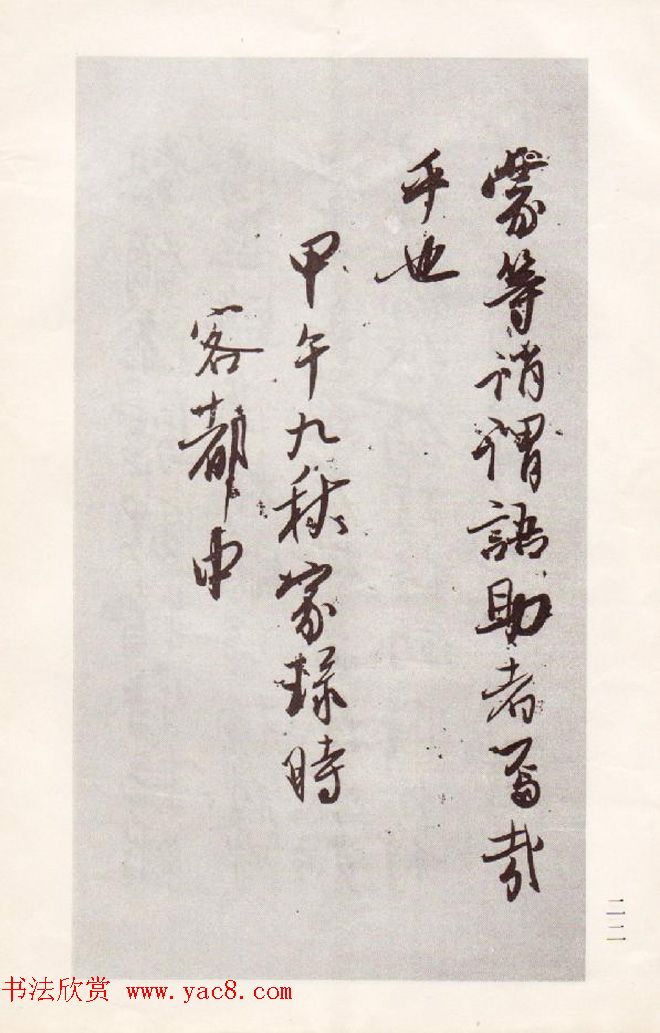 蒙等誚謂語助者焉哉
乎也
甲午九秋家時
客都中
二二
书法欣赏 www.yac8.com